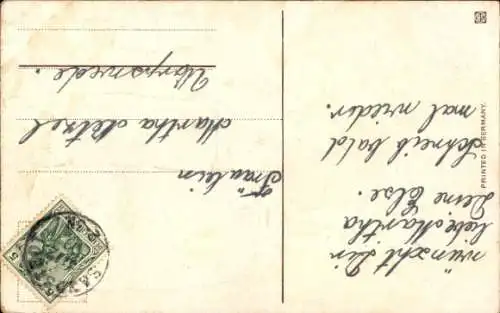 wünscht Dir
liebe Martha
Deine Else.
Schreib bald
mal wieder.
Fräulein
Martha
Worpswede.
PRINTED IN GERMANY.
5